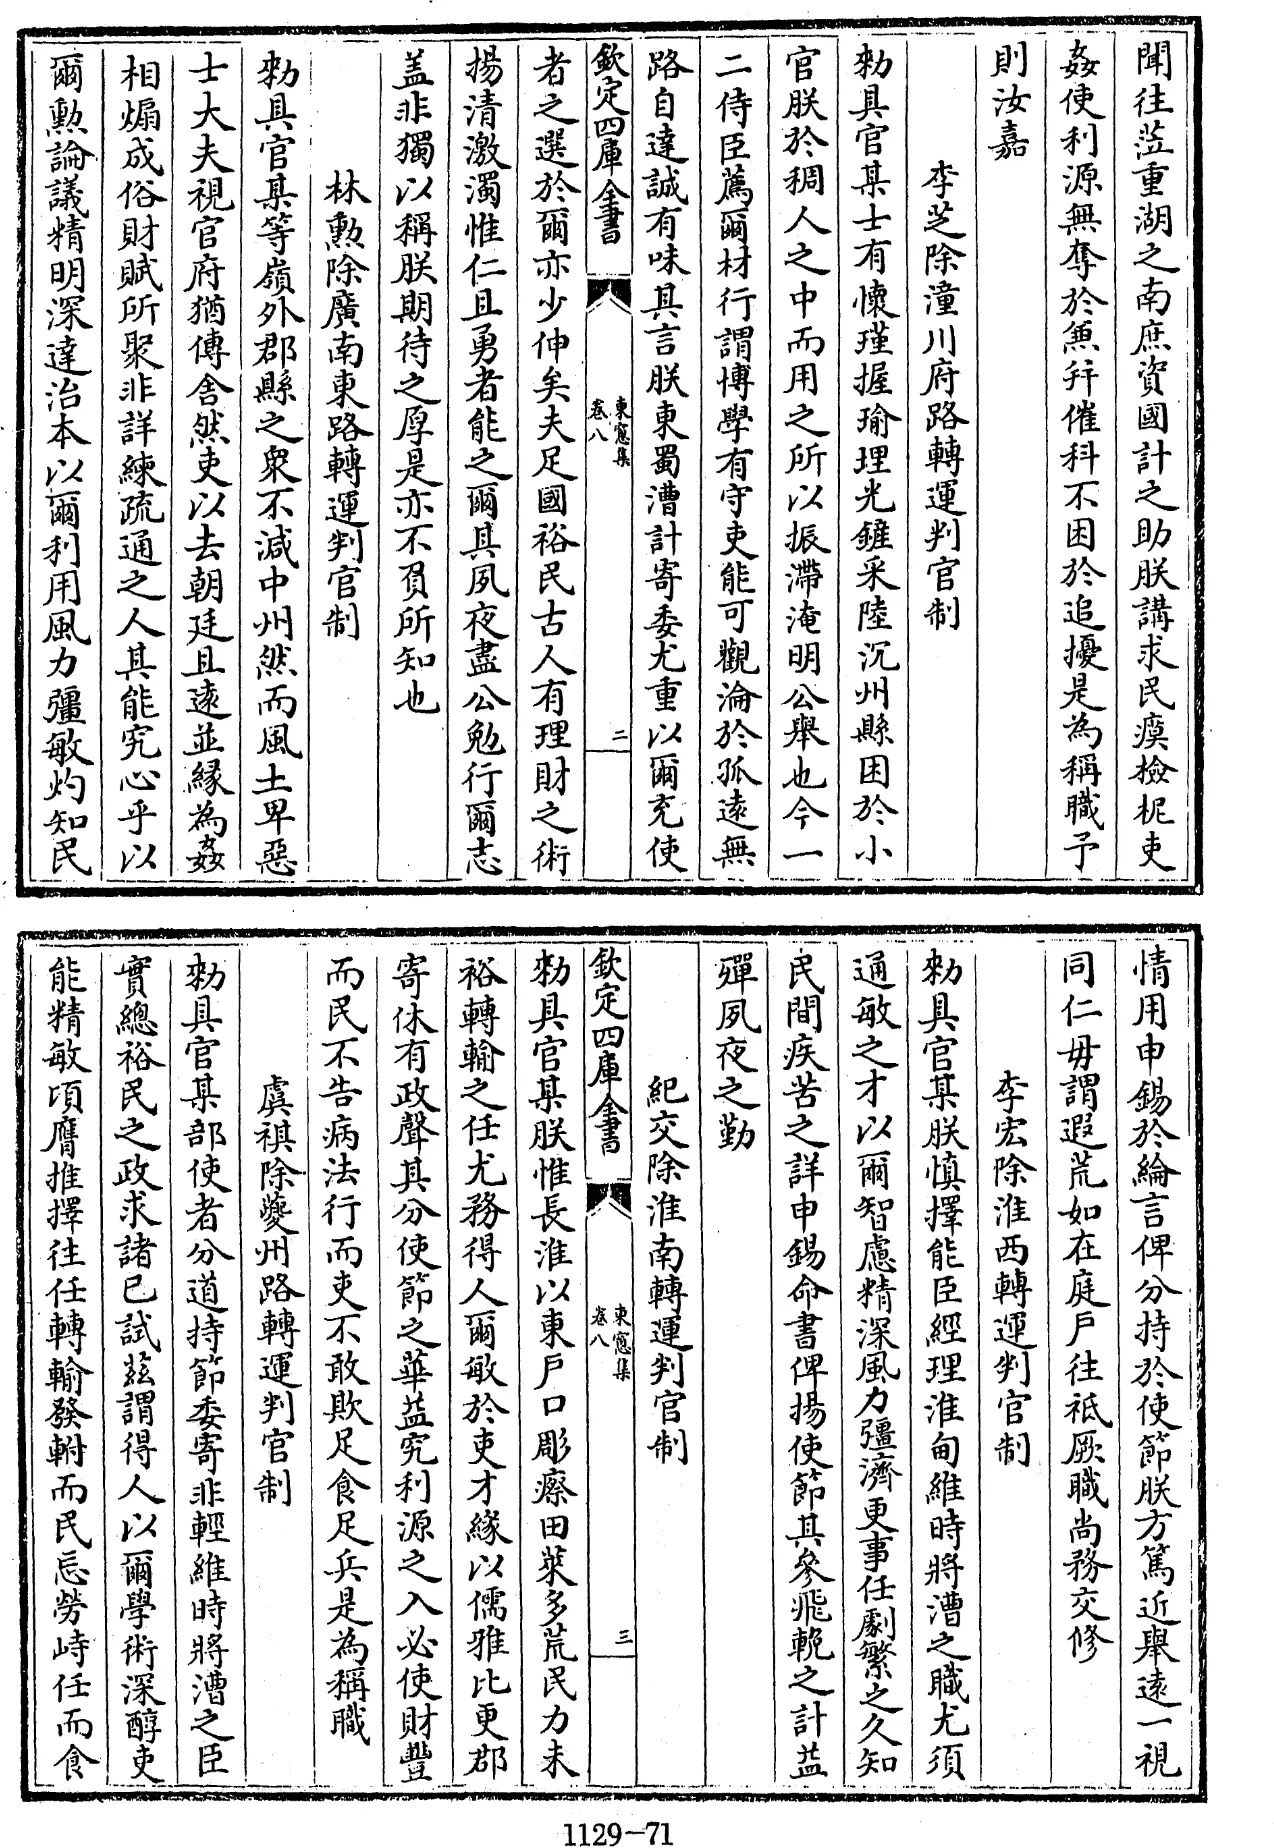 聞往涖重湖之南庶資國計之助朕講求民瘼檢柅吏
姦使利源無奪於兼幷催科不困於追擾是為稱職予
則汝嘉
李芝除潼川府路轉運判官制
勅具官某士有懷瑾握瑜埋光鏟采陸沉州縣困於小
官朕於稠人之中而用之所以振滯淹明公舉也今一
二侍臣薦爾材行謂博學有守吏能可觀淪於孤遠無
路自達誠有味其言朕東蜀漕計寄委尤重以爾充使
欽定四庫全書
東窻集
卷八
二
者之選於爾亦少伸矣夫足國裕民古人有理財之術
揚清激濁惟仁且勇者能之爾其夙夜盡公勉行爾志
盖非獨以稱朕期待之厚是亦不負所知也
林勲除廣南東路轉運判官制
勅具官某等嶺外郡縣之衆不減中州然而風土卑惡
士大夫視官府猶傳舍然吏以去朝廷且遠並緣為姦
相煽成俗財賦所聚非詳練疏通之人其能究心乎以
爾勲論議精明深達治本以爾利用風力彊敏灼知民
情用申錫於綸言俾分持於使節朕方篤近舉遠一視
同仁毋謂遐荒如在庭戶往祗厥職尚務交修
李宏除淮西轉運判官制
勅具官某朕慎擇能臣經理淮甸維時將漕之職尤須
通敏之才以爾智慮精深風力彊濟更事任劇繁之久知
民間疾苦之詳申錫命書俾揚使節其參飛輓之計益
殫夙夜之勤
紀交除淮南轉運判官制
欽定四庫全書
東窻集
卷八
三
勅具官某朕惟長淮以東戶口彫瘵田萊多荒民力未
裕轉輸之任尤務得人爾敏於吏才緣以儒雅比更郡
寄休有政聲其分使節之華益究利源之入必使財豐
而民不告病法行而吏不敢欺足食足兵是為稱職
虞祺除夔州路轉運判官制
勅具官某部使者分道持節委寄非輕維時將漕之臣
實總裕民之政求諸已試兹謂得人以爾學術深醇吏
能精敏頃膺推擇往任轉輸發軔而民忘勞峙任而食
1129-71